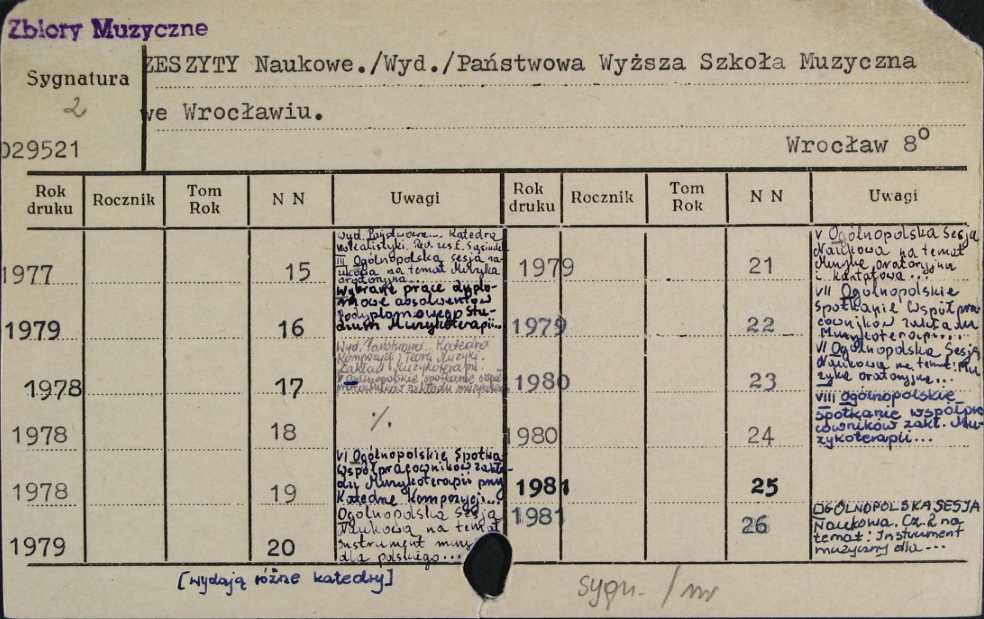 Zbiory Muzyczne
Sygnatura
2
029521
ZESZYTY Naukowe./Wyd./Państwowa Wyższa Szkoła Muzyczna
we Wrocławiu.
Wrocław 8°
Rok druku Rocznik Tom Rok N N Uwagi Rok druku Rocznik Tom Rok N N Uwagi
1977 15
Katedra
III Ogólnopolska sesja na-
ukowa na temat Muzyka
oratoryjna...
1979 16
Wybrane prace dyplo-
mowe absolwentów
Podyplomowego Stu-
dium Muzykoterapii...
1978 17
Katedra
Kompozycji i Teorii Muzyki.
Zakład Muzykoterapii.
V Ogólnopolskie spotkanie współ-
pracowników zakładu
1978 18
%.
1978 19
VI Ogólnopolskie Spotka.
Współpracowników zakła-
du Muzykoterapii przy
Katedrze Kompozycji...
1979 20
Ogólnopolska Sesja
Naukowa na temat
Instrument muzy
dla polskiego...
1979 21
V Ogólnopolska Sesja
Naukowa na temat
Muzyka oratoryjna
i kantatowa...
1979 22
VII Ogólnopolskie
spotkanie współpra
cowników zakładu
Muzykoterapi...
1980 23
VI Ogólnopolska Sesja
Naukowa na temat: Mu
zyka oratoryjna...
1980 24
VIII ogólnopolskie
spotkanie współpra
cowników zakł. Mu-
zykoterapii...
1981 25
1981 26
OGÓLNOPOLSKA SESJA
Naukowa. Cz. 2 na
temat: Instrument
muzyczny dla...
[wydają różne katedry]
sygn. / nr